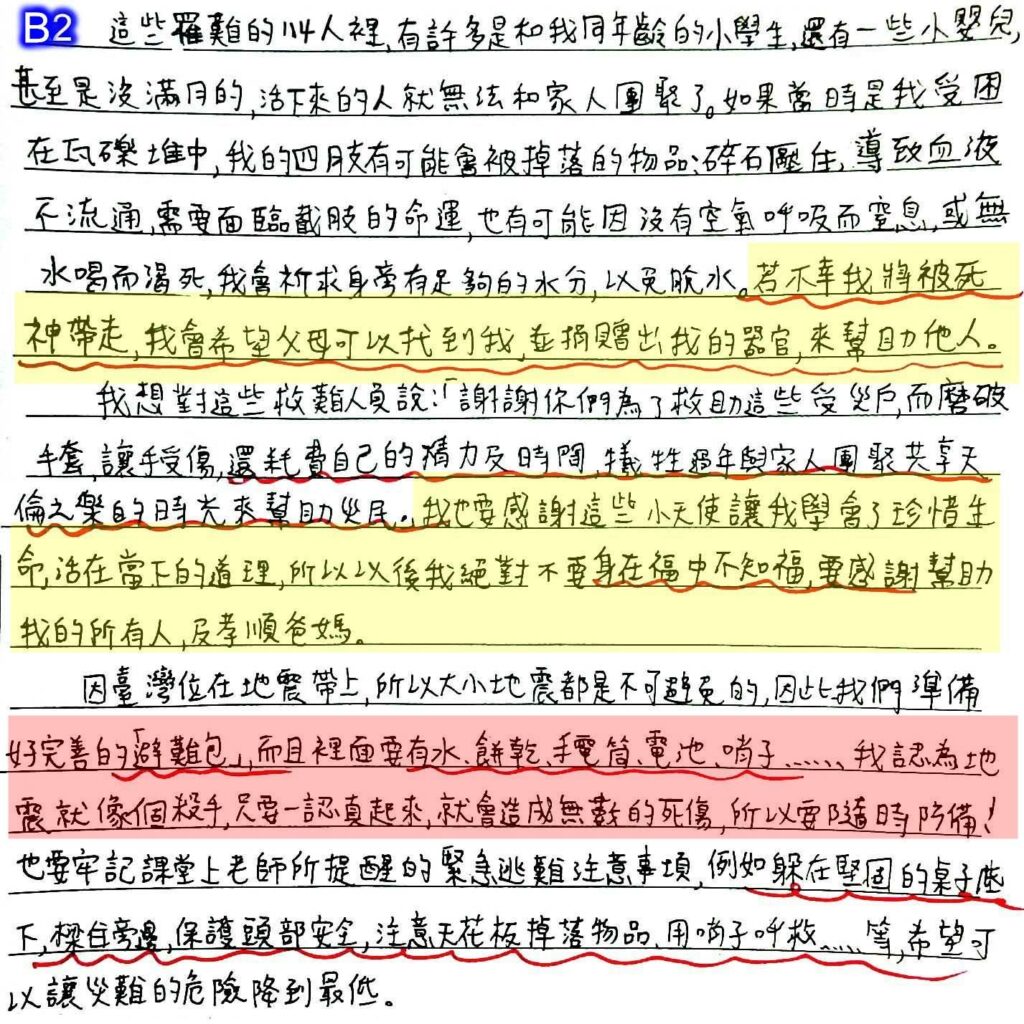 B2 這些罹難的114人裡,有許多是和我同年齡的小學生,還有一些小嬰兒,
甚至是沒滿月的,活下來的人就無法和家人團聚了。如果當時是我受困
在瓦礫堆中,我的四肢有可能會被掉落的物品、碎石壓住,導致血液
不流通,需要面臨截肢的命運,也有可能因沒有空氧呼吸而窒息,或無
水喝而渴死,我會祈求身旁有足夠的水分,以免脫水。若不幸我將被死
神帶走,我會希望父母可以找到我,並捐贈出我的器官,來幫助他人。
我想對這些救難人員說:「謝謝你們為了救助這些受災戶,而磨破
手套,讓手受傷,還耗費自己的精力及時間,犧牲過年與家人團聚共享天
倫之樂的時光來幫助災民。我也要感謝這些小天使讓我學會了珍惜生
命,活在當下的道理,所以以後我絕對不要身在福中不知福,要感謝幫助
我的所有人,及孝順爸媽。
因臺灣位在地震帶上,所以大小地震都是不可避免的,因此我們準備
好完善的「避難包」,而且裡面要有水、餅乾、手電筒、電池、哨子……、我認為地
震就像個殺手,只要一認真起來,就會造成無數的死傷,所以要隨時防備!
也要牢記課堂上老師所提醒的緊急逃難注意事項,例如躲在堅固的桌子底
下,樑柱旁邊,保護頭部安全,注意天花板掉落物品、用哨子呼救……等,希望可
以讓災難的危險降到最低。